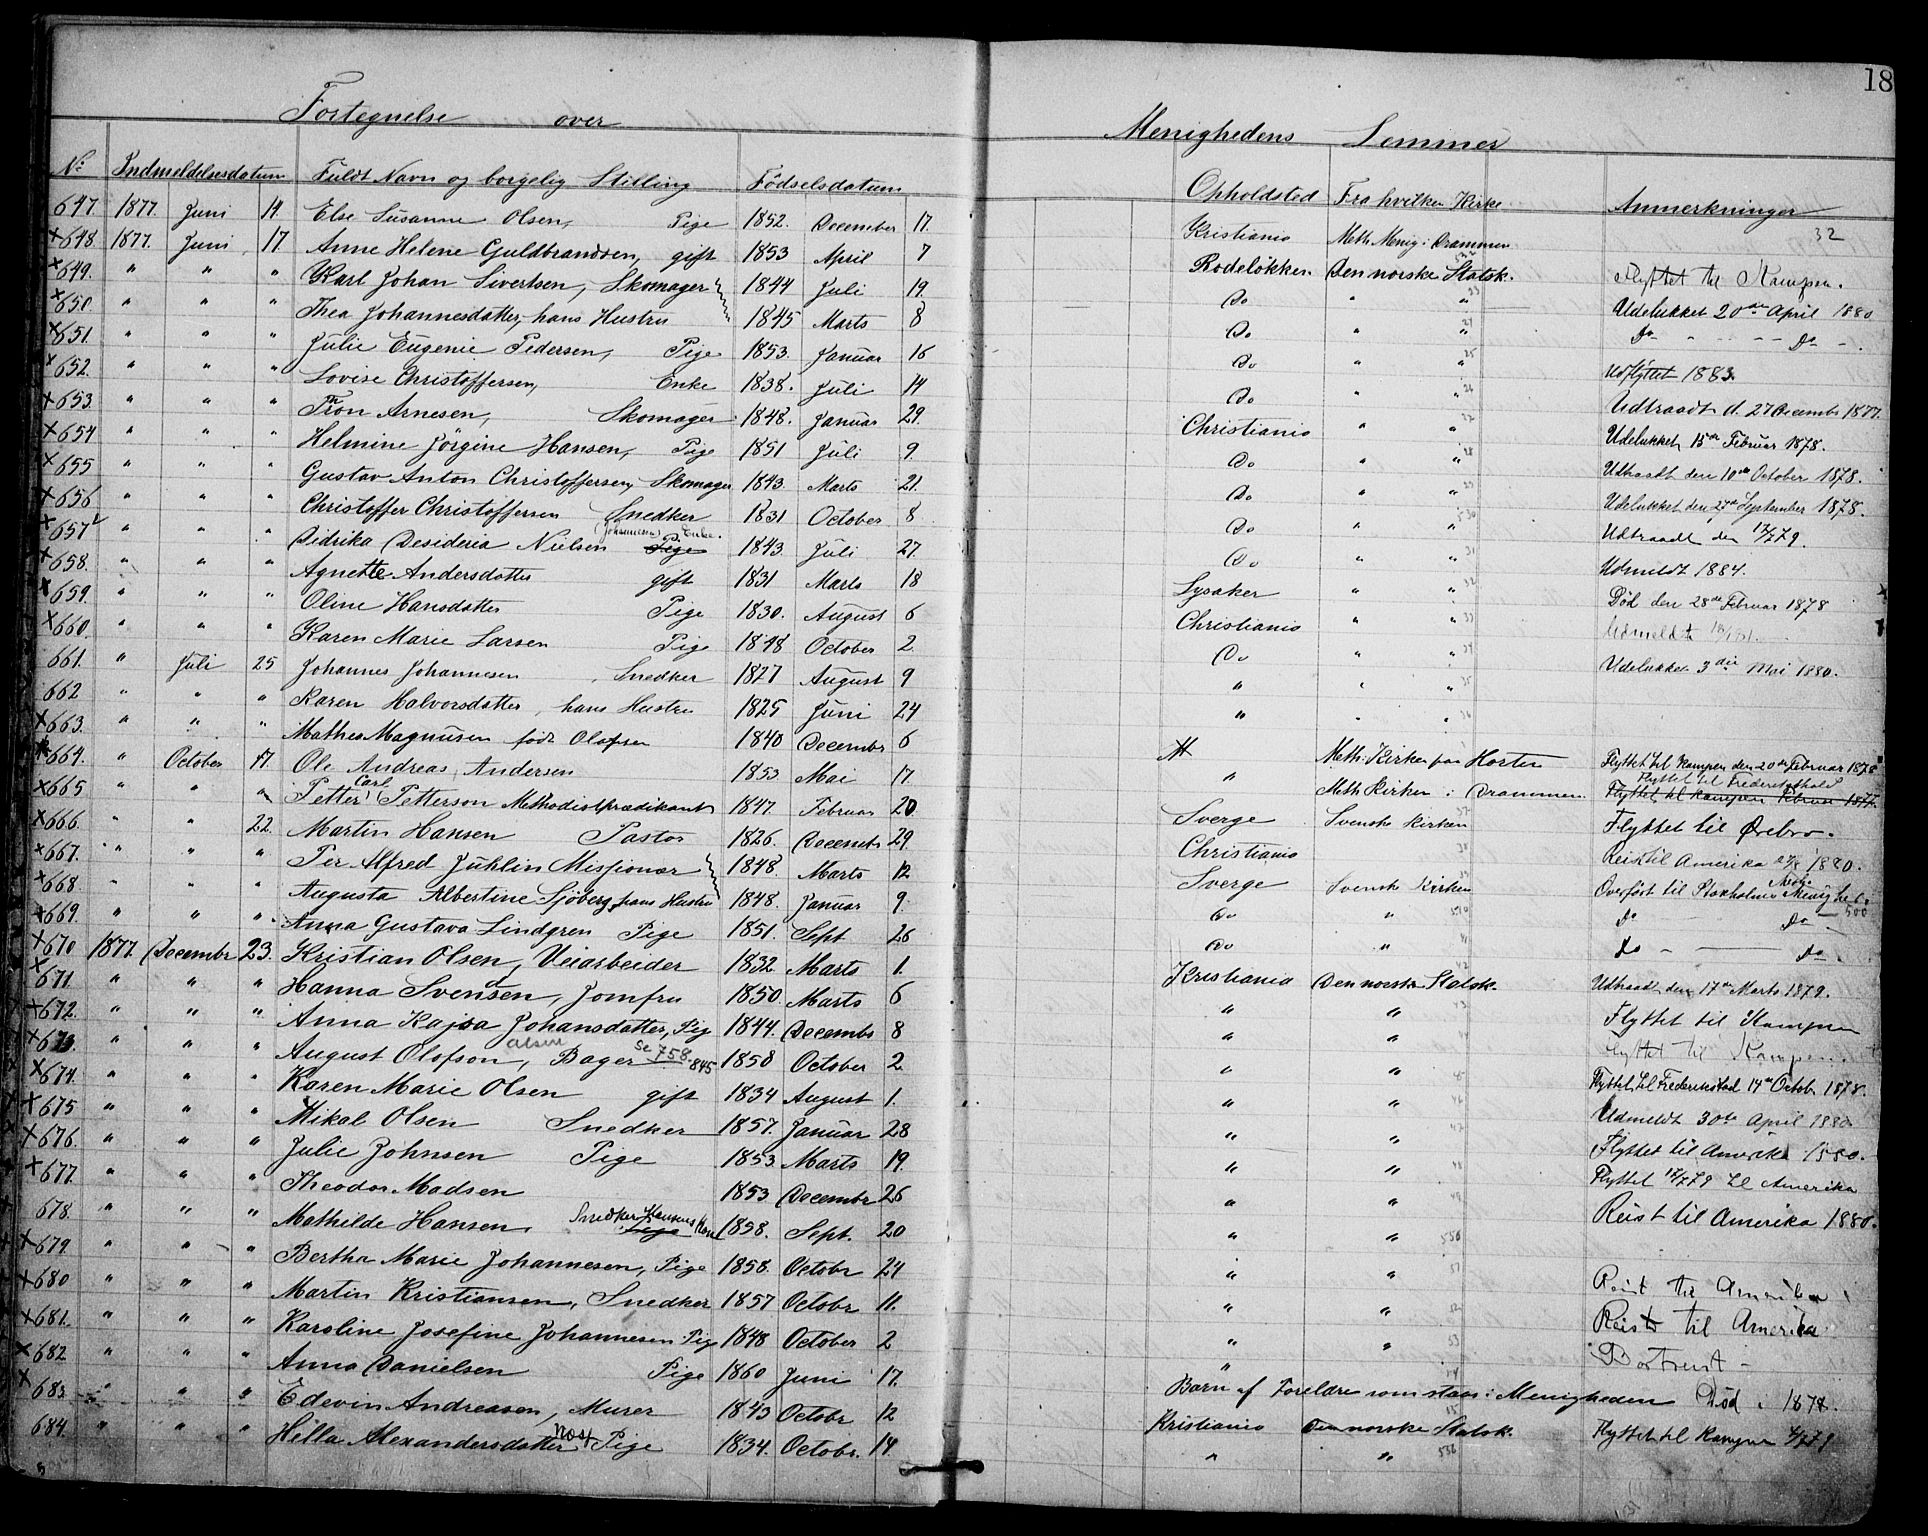 18
Fortegnelse over Menighedens Lemmer
No Indmeldelsesdatum Fuldt Navn og borgelig Stilling Fødselsdatum Opholdsted Fra hvilken Kirke Anmerkninger
32
647. 1877. Juni 14. Else Susanne Olsen, Pige 1852. December 17. Kristiania Meth. Menig. i Drammen
x648. 1877. Juni 17. Anne Helene Guldbrandsen, gift 1853 April 7 Rodeløkken. Den norske Statsk. Flyttet til Kampen.
x649. " " " Karl Johan Sivertsen, Skomager 1844 Juli 19. Do " " Udelukket 20de April 1880
x650. " " " Thea Johannesdatter, hans Hustru 1845 Marts 8 Do " " Do - - - - Do -
x651 " " " Julie Eugenie Pedersen, Pige 1853. Januar 16 Do " " Udflyttet 1883.
x652. " " " Lovise Christoffersen, Enke 1838. Juli 14 Do " " Udtraadt d. 27 Decembr 1877.
x653. " " " Tron Arnesen, Skomager 1848. Januar 29. Christiania " " Udelukket 15de Februar 1878.
x654 " " " Helmine Jörgine Hansen, Pige 1851 Juli 9. Do " " Udtraadt den 10de October 1878.
x655 " " " Gustav Anton Christoffersen, Skomager 1843. Marts 21. Do " " Udelukket den 27de September 1878.
x656 " " " Christoffer Christoffersen Snedker 1831 October 8 Do " " Udtraadt den 17/7 79.
x657 " " " Didrika Desideria Nielsen (Johannesen) Pige Enke. 1843. Juli 27. Do " " Udmeldt 1884.
x658. " " " Agnette Andersdatter gift 1831 Marts 18 Lysaker " " Død den 28de Februar 1878
x659. " " " Oline Hansdatter Pige 1830. August 6 Christiania " " Udmeldt
x660. " " " Karen Marie Larsen Pige 1848 October 2. Do " " Udelukket 3die Mai 1880.
661. " Juli 25 Johannes Johannesen Snedker 1827 August 9 " " "
662 " " " Karen Halvorsdatter, hans Hustru 1825 Juni 24 " " "
x663. " " " Mathea Magnusen født Olafsen 1840 Decembr 6 Meth. Kirken paa Horten Flyttet til Kampen den 20de Februar 1878
x664. " October 17. Ole Andreas Andersen 1853 Mai 17 " Meth Kirken i Drammen. Flyttet til Frederikshald Flyttet til Kampen Februar 1877.
x665 " " " Petter Carl Petterson Methodistprædikant 1847. Februar 20 Sverge Svenske Kirken Flyttet til Ørebro.
x666. " " 22. Martin Hansen Pastor 1826. Decembr 29. Christiania Reist til Amerika 1880.
x667. " " " Per Alfred Juhlin Misjionær 1848. Marts 12 Sverge Svenske Kirken Overført til Stokholms Meth. Menighed.
x668 " " " Augusta Albertine Sjöberg, hans Hustru 1848. Januar 9. Do " Do - Do -
x669. " " " Anna Gustava Lindgren Pige 1851. Sept 26 Do " Do - Do -
x670 1877. Decembr 23. Kristian Olsen, Veiarbeider 1832 Marts 1. Kristiania Den norske Statsk. Udtraadt den 17de Marts 1879.
x671. " " " Hanna Svensen, Jomfru 1850. Marts 6 " " Flyttet til Kampen
x672. " " " Anna Kajsa Johansdatter, Pig 1844. Decembr 8 " " Flyttet til Kampen.
x673. " " " August Olofson, Olsen Bager Se 758. 845 1850 October 2 " " Flyttet til Frederikstad 14de Octobr 1878.
x674. " " " Karen Marie Olsen gift 1834 August 1. " " Udmeldt 30te April 1880
x675 " " " Mikal Olsen Snedker 1857. Januar 28 " " Flyttet til Amerika 1880.
x676. " " " Julie Johnsen Pige 1853. Marts 19. " " Flyttet 17/7 79 til Amerika
x677. " " " Theodor Madsen 1853 Decembr 26 " " Reist til Amerika 1880.
678. " " " Mathilde Hansen, Snedker Hansens Kone Pige 1858. Sept. 20 " "
x679. " " " Bertha Marie Johannesen, Pige 1858. Octobr 24 " " Reist til Amerika
x680 " " " Martin Kristiansen, Snedker 1857 Octobr 11. " " Reist til Amerika
x681. " " " Karoline Josefine Johannesen Pig 1848 October 2 " " Bortreist -
x682 " " " Anna Danielsen Pige 1860 Juni 17. Barn af Foreldre som staar i Menigheden Død i 1878.
x683 " " " Edevin Andreasen, Murer 1843 Octobr 12 Kristiania Den norske Statsk. Flyttet til Kampen 79
684. " " " Hilla Alexandersdatter Pige 1834. Octobr. 14 " "